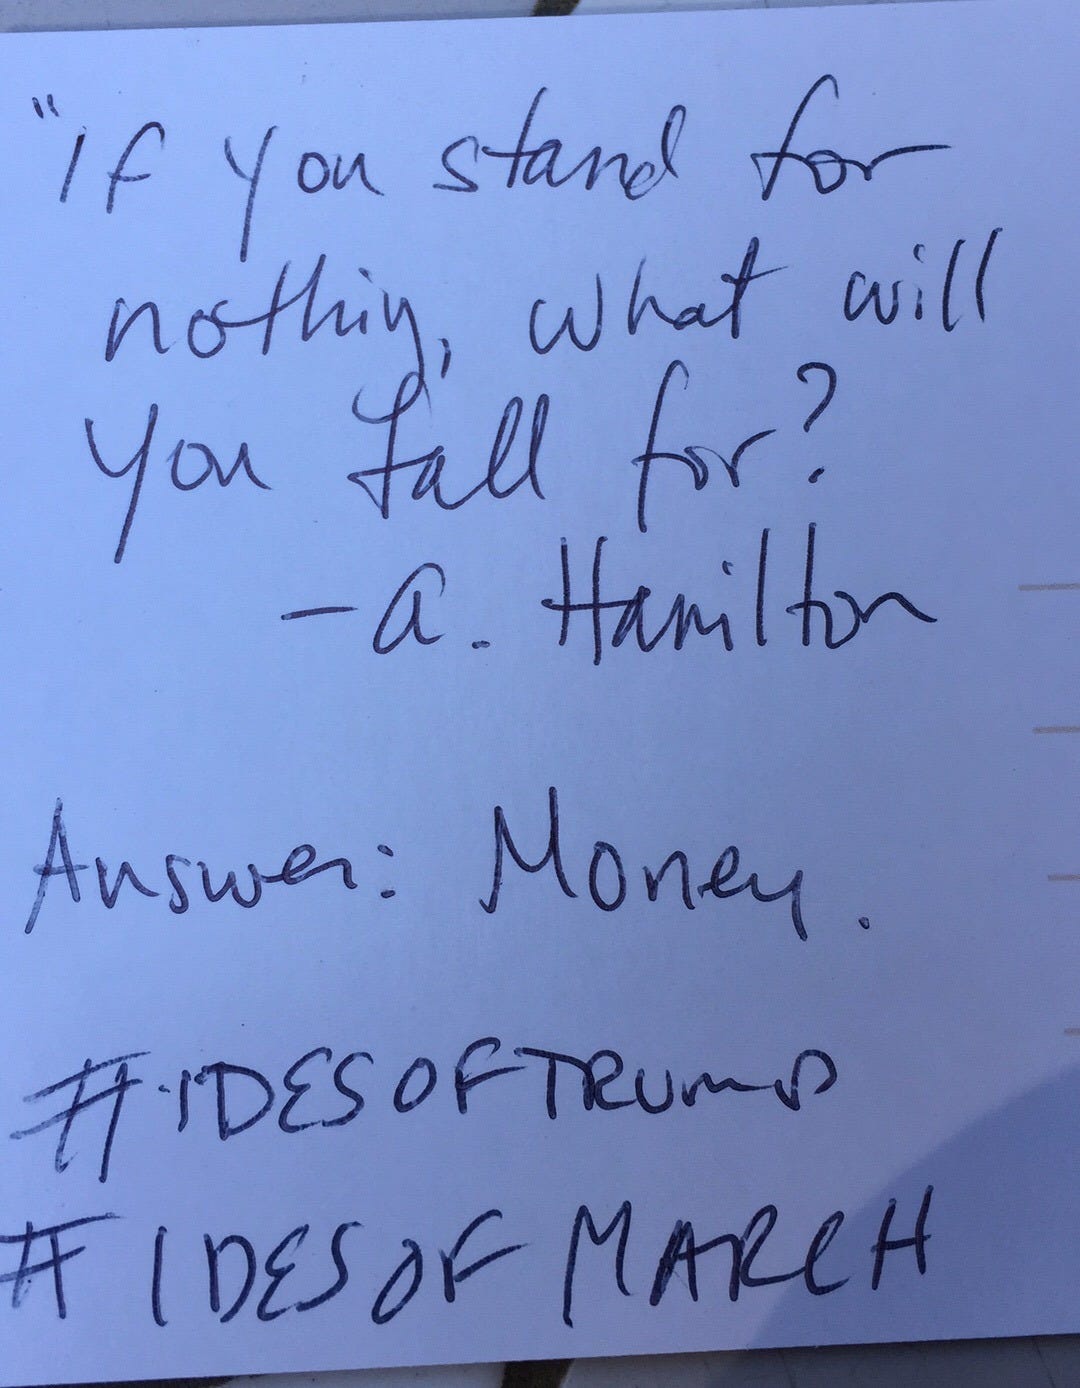 "If you stand for
nothing, what will
you fall for?
- A. Hamilton
Answer: Money.
#IDESOFTRUMP
#IDESOFMARCH